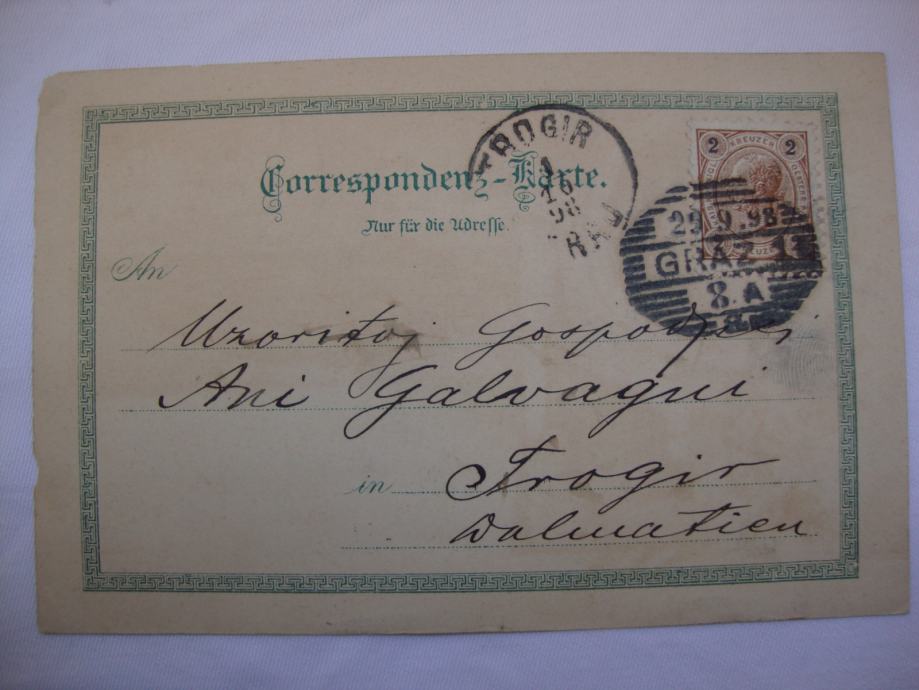 Correspondenz-Karte.
Nur für die Adresse.
TROGIR
1
98
2 KREUZER 2
29.9.98
GRAZ 1
8.A
An
Uzoritoj Gospodjici
Ani Galvagni
in Trogir
Dalmatien